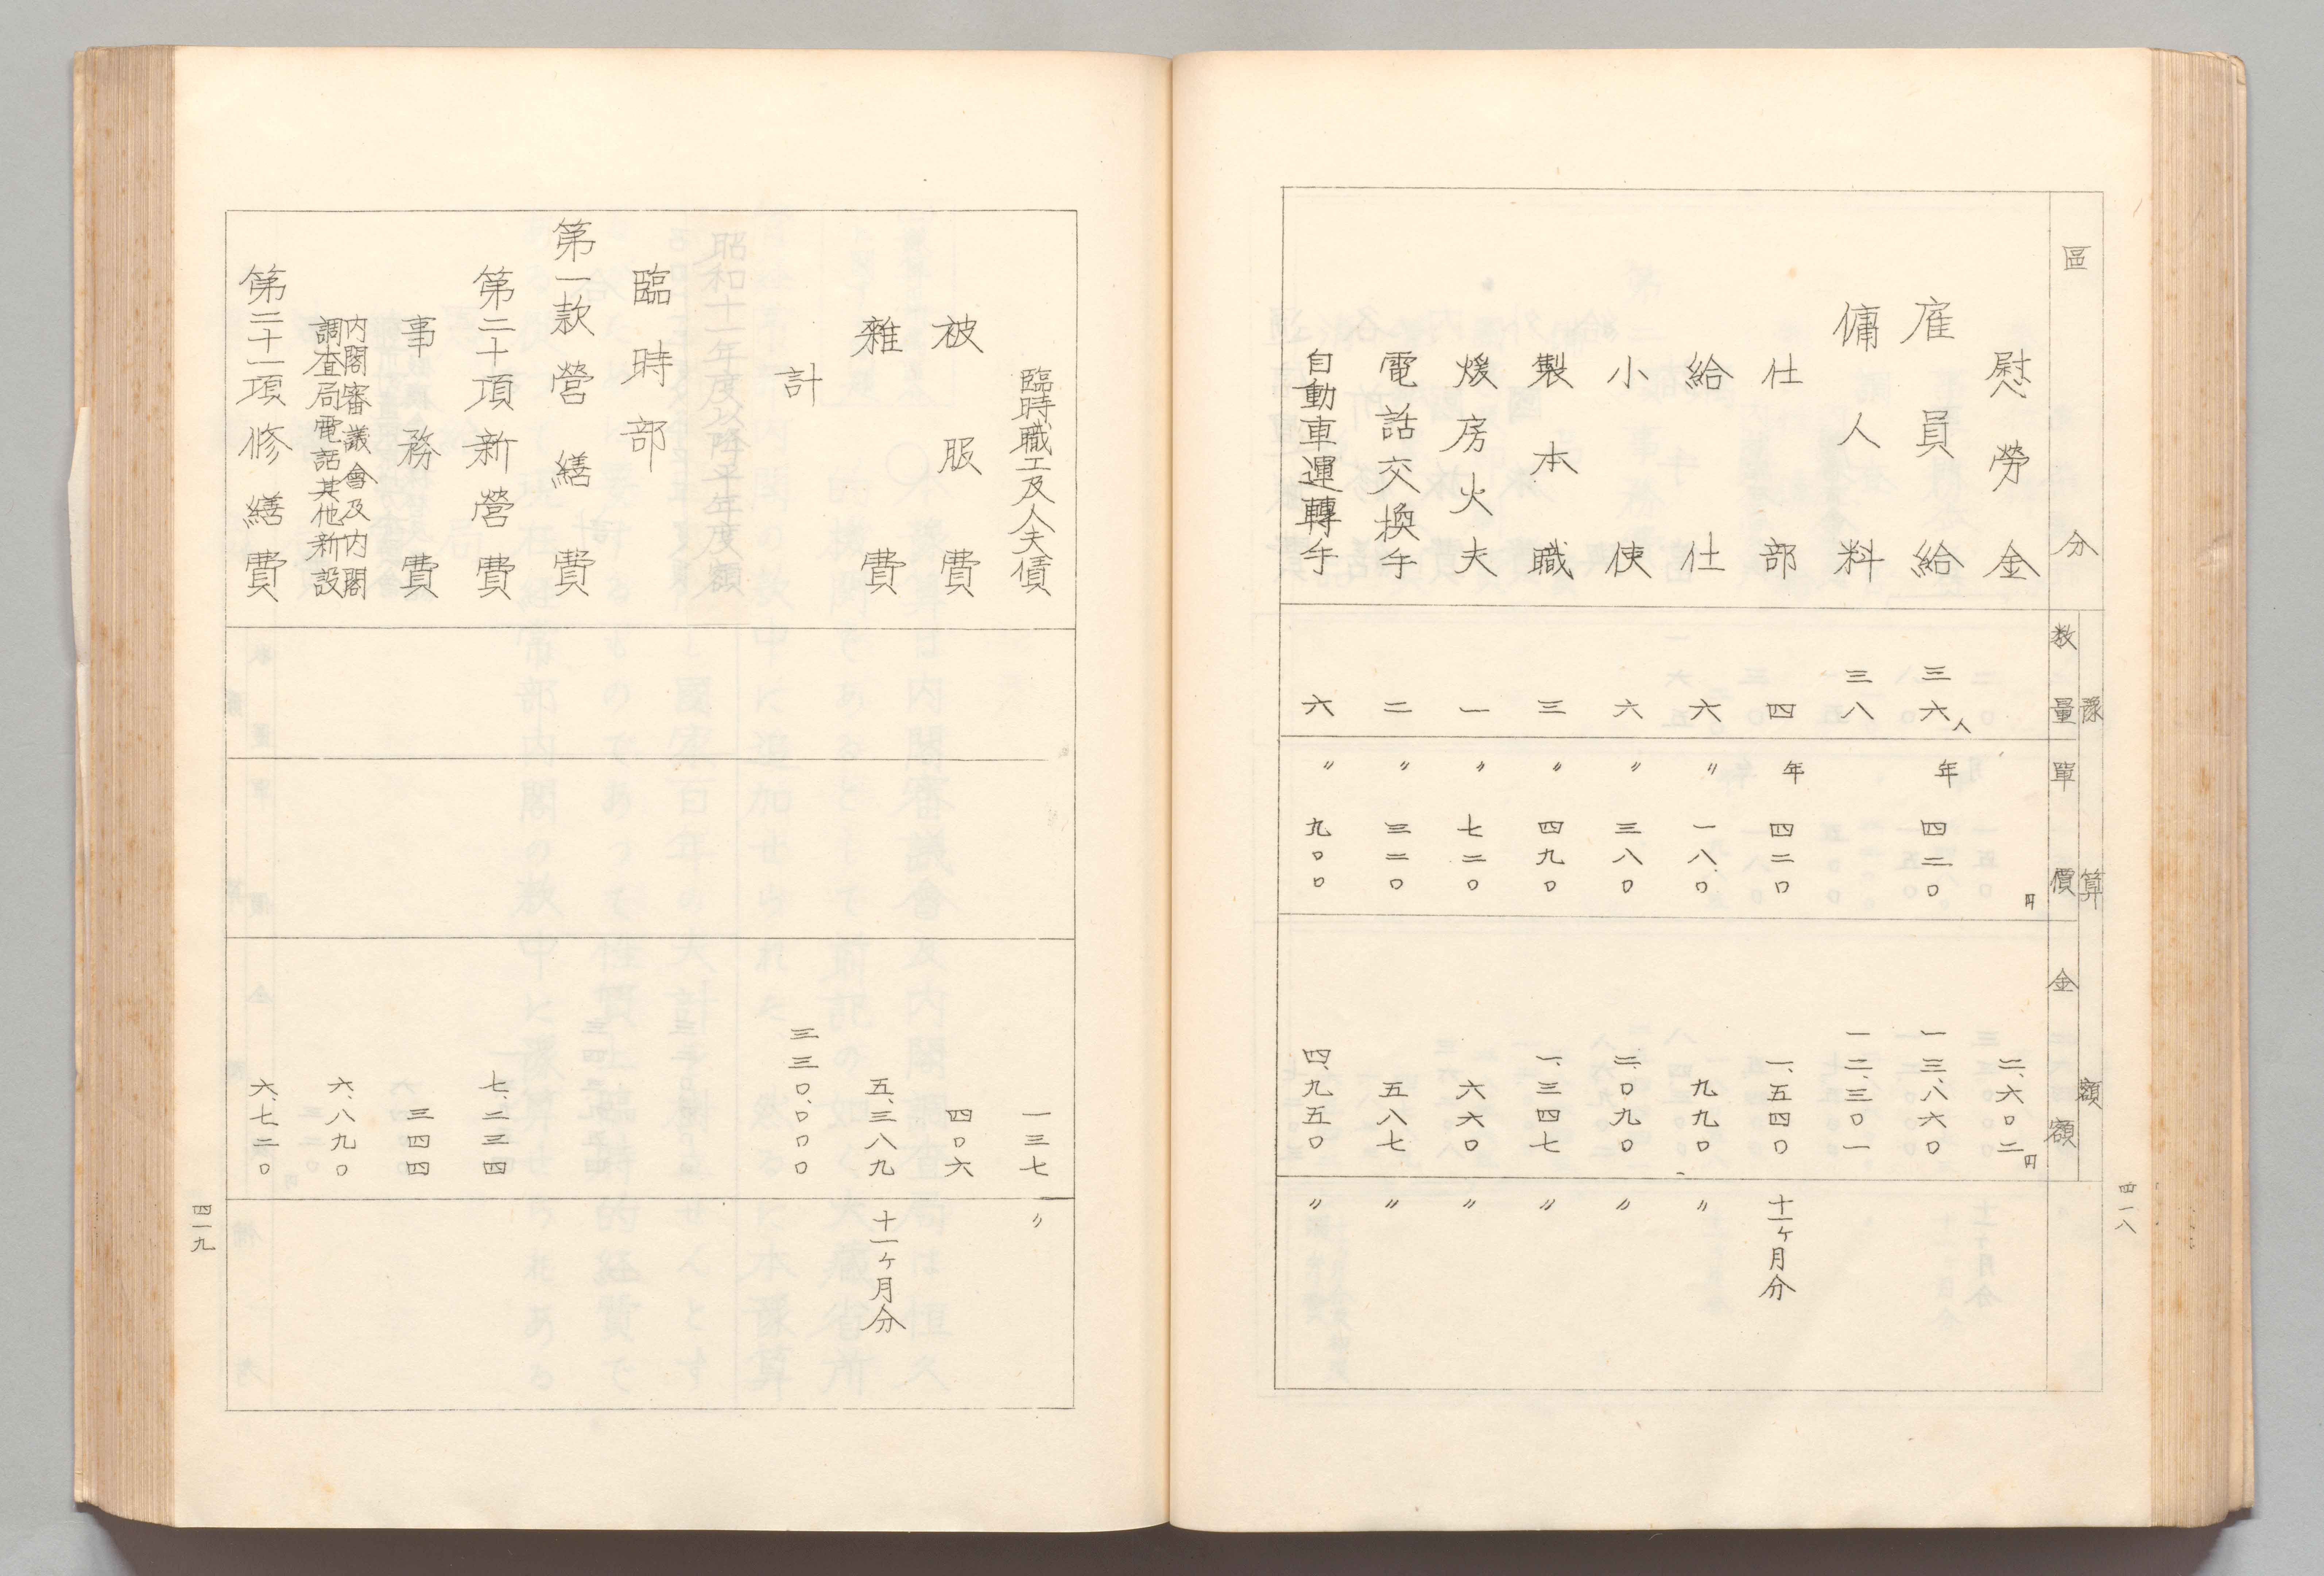 四一八
區分 豫算額
數量 單價 金額
慰勞金 二、六〇二円
雇員給 三六人 年四二〇 一三、八六〇
傭人料 三八 一二、三〇一
仕部 四 年四二〇 一、五四〇 十一ヶ月分
給仕 六 〃一八〇 九九〇 〃
小使 六 〃三八〇 二、〇九〇 〃
製本職 三 〃四九〇 一、三四七 〃
煖房火夫 一 〃七二〇 六六〇 〃
電話交換手 二 〃三二〇 五八七 〃
自動車運轉手 六 〃九〇〇 四、九五〇 〃
臨時職工及人夫賃 一三七 〃
被服費 四〇六
雜費 五、三八九 十一ヶ月分
計 三三〇、〇〇〇
臨時部
第一款營繕費
第二十項新營費 七、二三四
事務費 三四四
內閣審議會及內閣
調査局電話其他新設 六、八九〇
第二十一項修繕費 六、七二〇
四一九